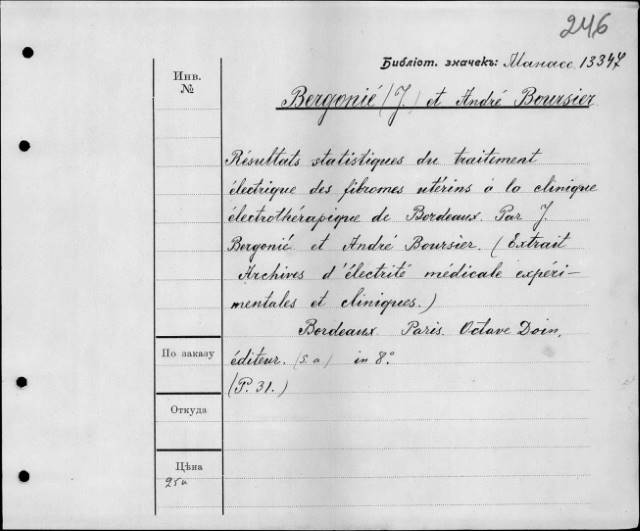 246
Библіот. значекъ: Манасс 13347
Инв.
№
Bergonié (J.) et André Boursier
Résultats statistiques du traitiment
électrique des fibromes utérins à la clinique
électrothérapique de Bordeaux. Par J.
Bergonié et André Boursier. (Extrait
Archives d'électrité médicale expéri-
mentales et cliniques.)
Bordeaux Paris. Octave Doin,
éditeur. (s a) in 8°
(P. 31.)
По заказу
Откуда
Цѣна